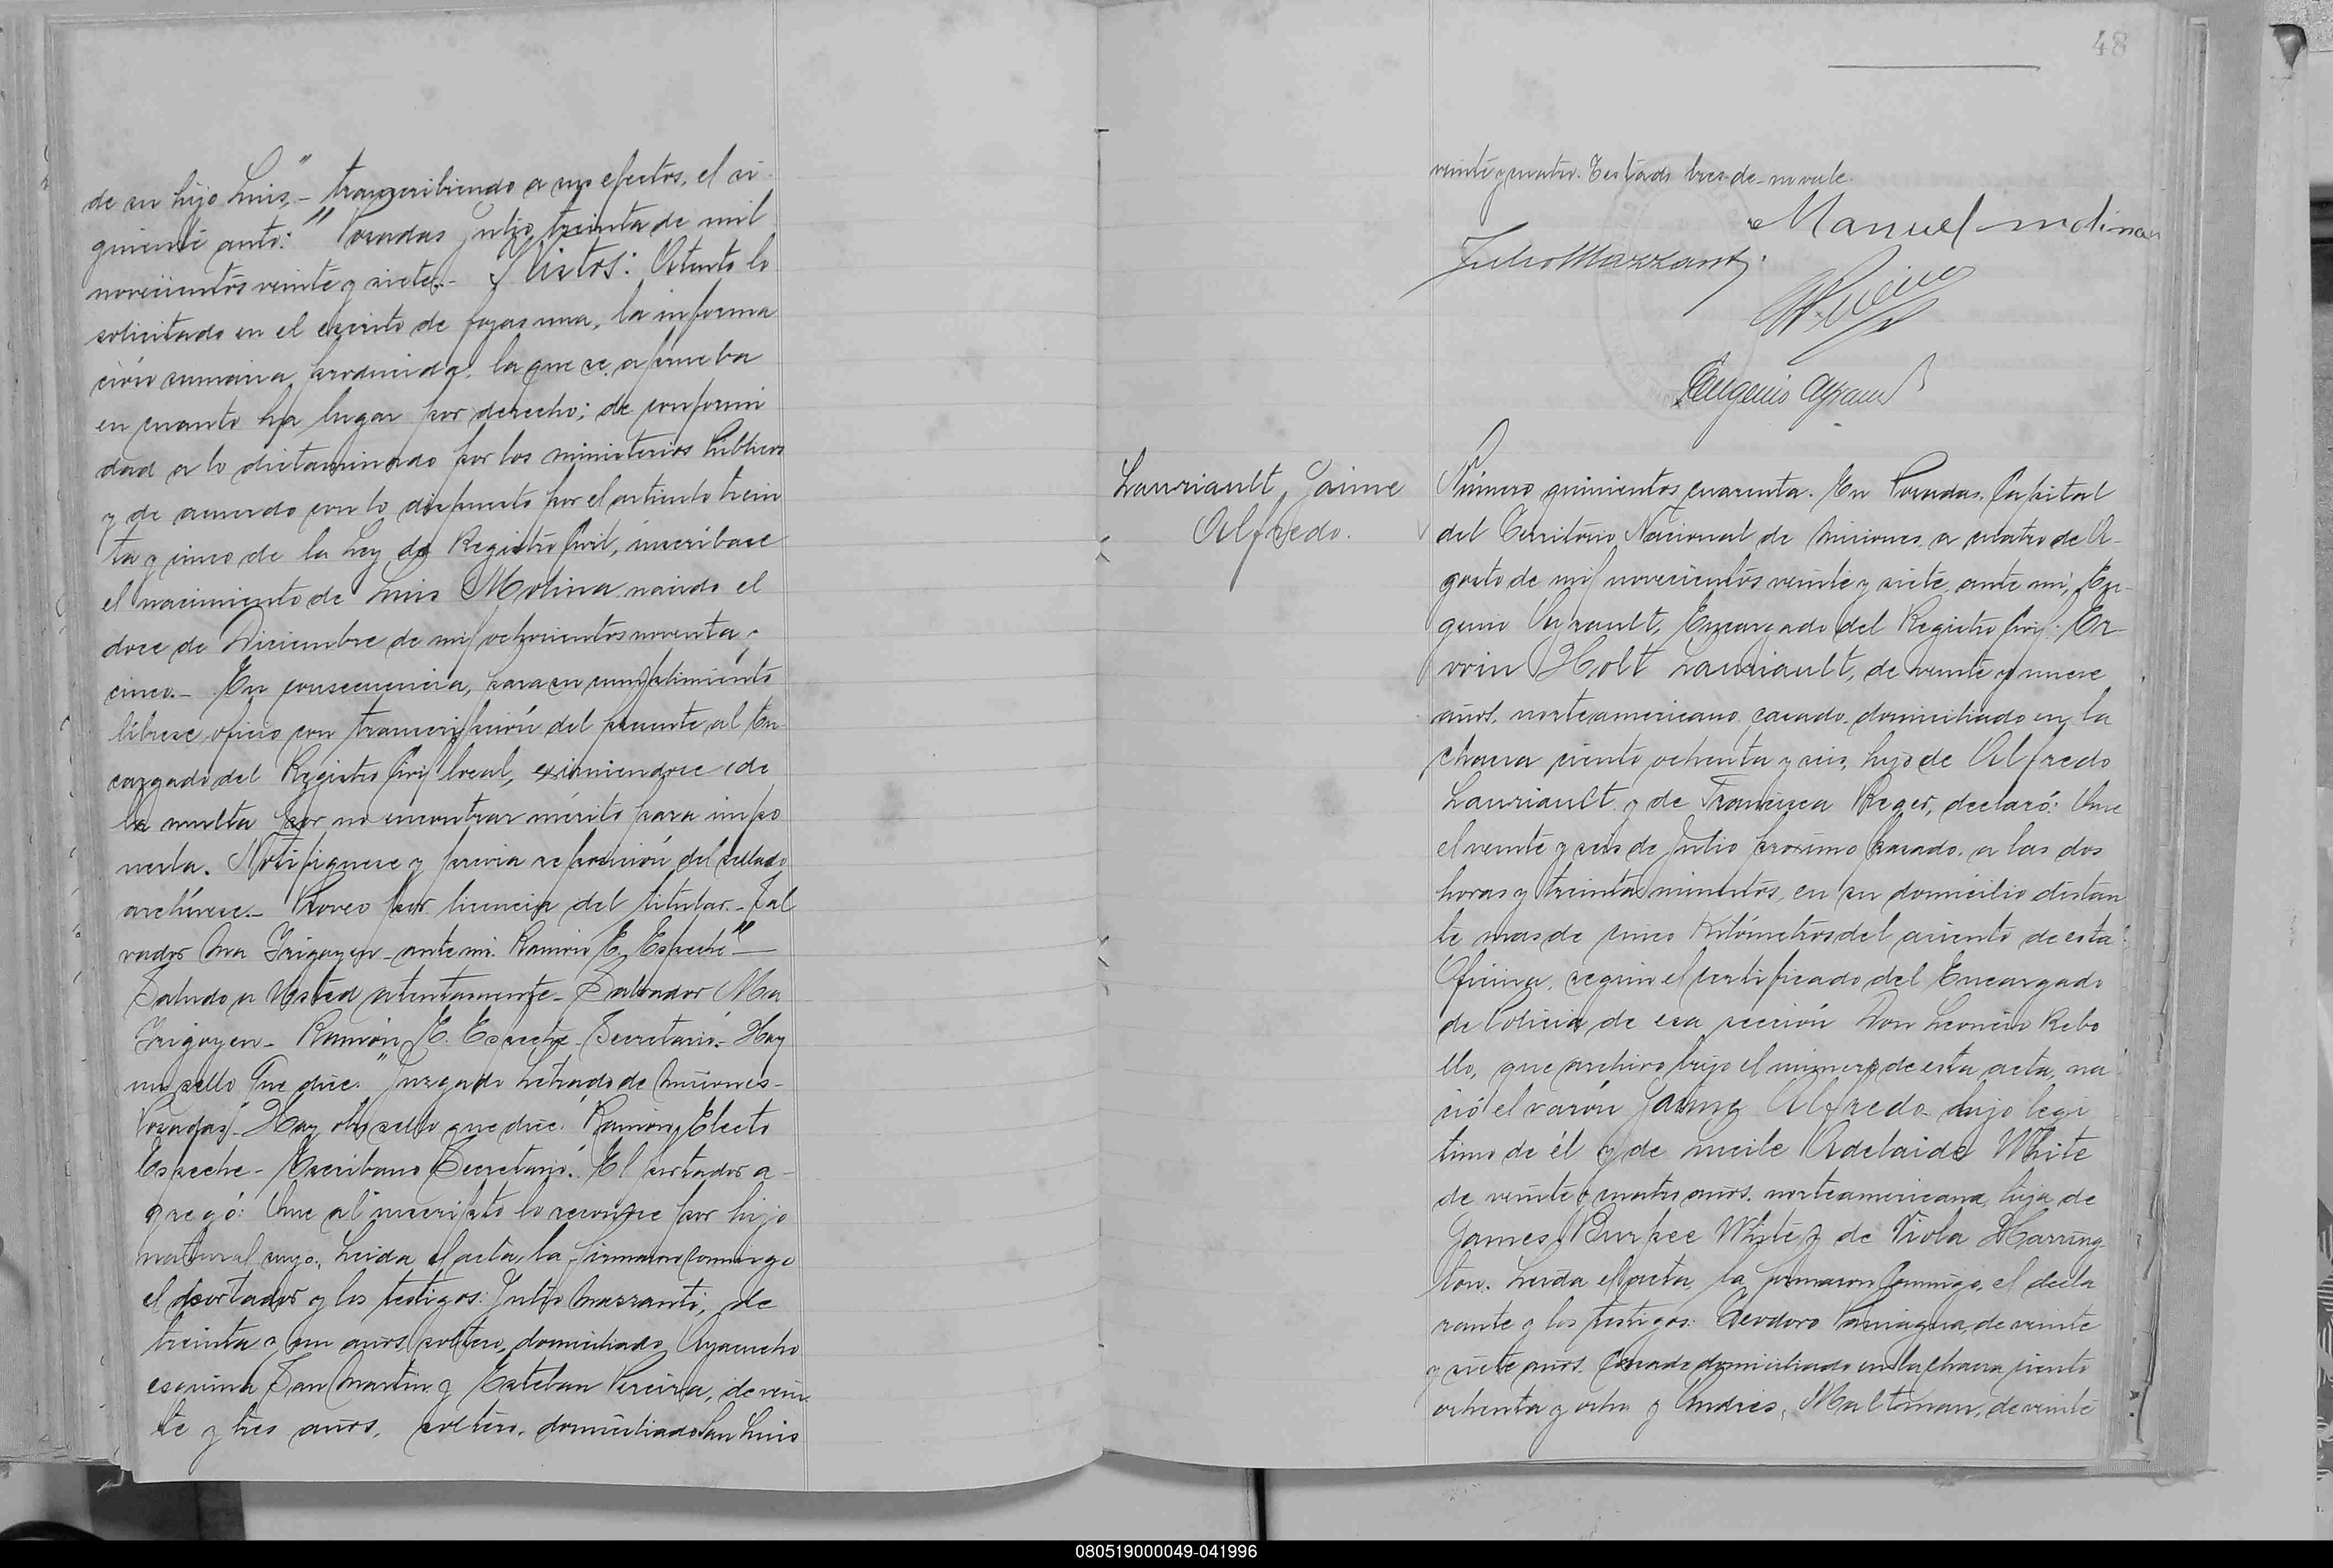 de su hijo Luis"- transcribiendo a sus efectos, el si
guiente auto: "Posadas Julio treinta de mil
novecientos veinte y siete.- Y Vistos: Atento lo
solicitado en el escrito de fojas una, la informa
ción sumaria producida, la que se aprueba
en cuanto ha lugar por derecho; de conformi
dad a lo dictaminado por los ministerios Públicos
y de acuerdo con lo dispuesto por el artículo trein
ta y cinco de la Ley de Registro Civil, inscríbase
el nacimiento de Luis Molina nacido el
doce de Diciembre de mil ochocientos noventa y
cinco.- En consecuencia, para su cumplimiento
líbrese oficio con transcripción del presente al En-
cargado del Registro Civil local, eximiendose de
la multa por no encontrar mérito para impo
nerla. Notifiquese y previa reposición del sellado
archívese.- Proveo por licencia del titular.- Sal
vador Ma Irigoyen - ante mi. Ramón E. Espeche"-
Saludo a Usted atentamente - Salvador Ma
Irigoyen - Ramón E. Espeche - Secretario.- Hay
un sello que dice: "Juzgado Letrado de Misiones-
Posadas". Hay otro sello que dice: Ramón Electo
Espeche - Escribano Secretario". El portador a-
gregó: Que al inscripto lo reconoce por hijo
natural suyo. Leida el acta, la firmaron conmigo
el portador y los testigos: Julio Mazzanti, de
treinta y un años, soltero, domiciliado Ayacucho
esquina San Martin y Esteban Pereira, de vein
te y tres años, soltero, domiciliado San Luis
48
veinte y cuatro. Testado tres-de-no vale.
Manuel Molina
Julio Mazzanti.
Eugenio
Lauriault, Jaime
Alfredo.
Número quinientos cuarenta. En Posadas, Capital
del Territorio Nacional de Misiones, a cuatro de A-
gosto de mil novecientos veinte y siete, ante mi, Eu-
genio Ayrault, Encargado del Registro Civil: Er
win Holt Lauriault, de veinte y nueve
años, norteamericano, casado, domiciliado en la
chacra ciento ochenta y seis, hijo de Alfredo
Lauriault y de Francisca Reger, declaró: Que
el veinte y seis de Julio próximo pasado, a las dos
horas y treinta minutos, en su domicilio distan
te mas de cinco Kilómetros del asiento de esta
Oficina, según el certificado del Encargado
de Policia de esa sección Don Leoncio Rebo
llo, que archivo bajo el número de esta acta, na
ció el varón Jaime Alfredo hijo legi
timo de él y de Adelaide White
de veinte y cuatro años, norteamericana, hija de
James Burpee White y de Viola Harring-
ton. Leida el acta, la firmaron conmigo, el decla
rante y los testigos: Teodoro Paniagua, de veinte
y siete años, casado, domiciliado en la chacra ciento
ochenta y ocho y Andres Maltman, de veinte
080519000049-041996